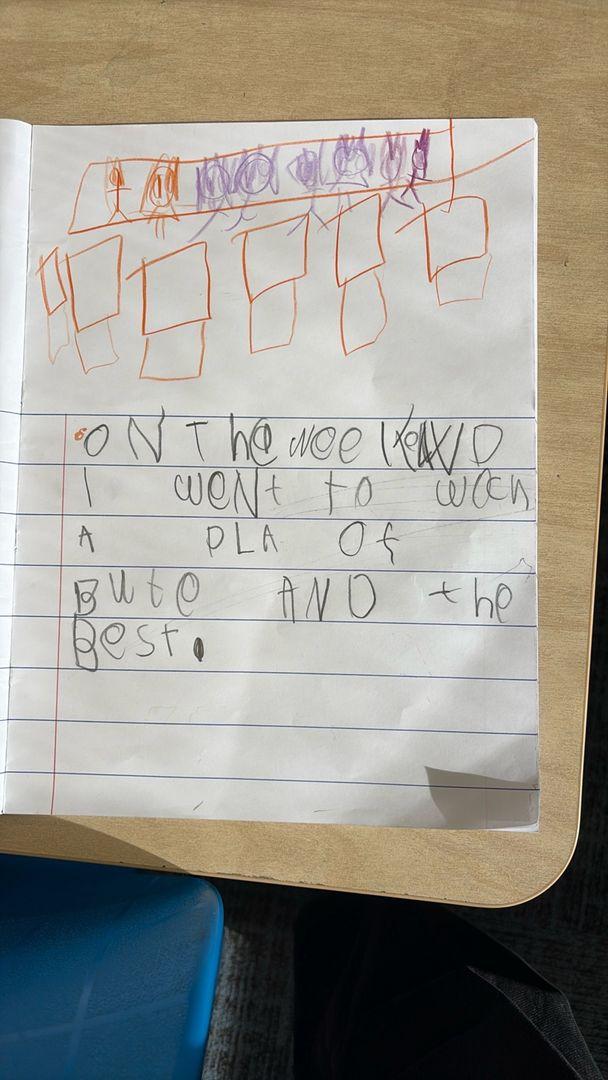 ON The weekeND
I weNt to woch
A PLA Of
Bute AND the
Best.